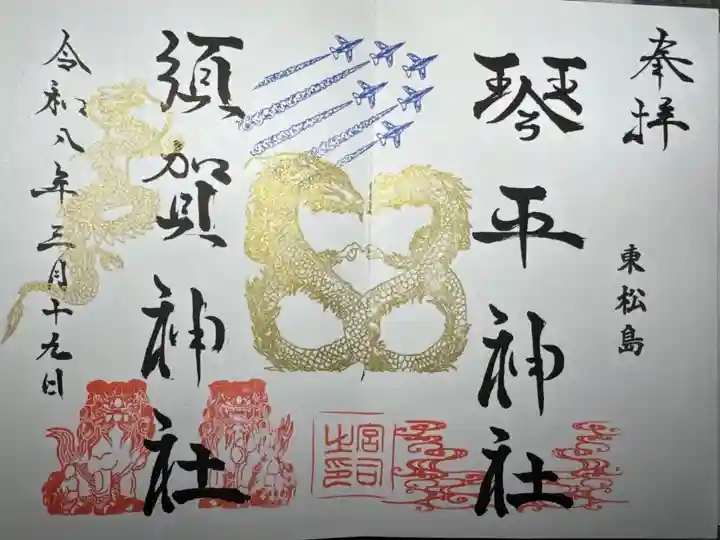 奉拝
東松島
琴平神社
宮司之印
須賀神社
令和八年三月十九日